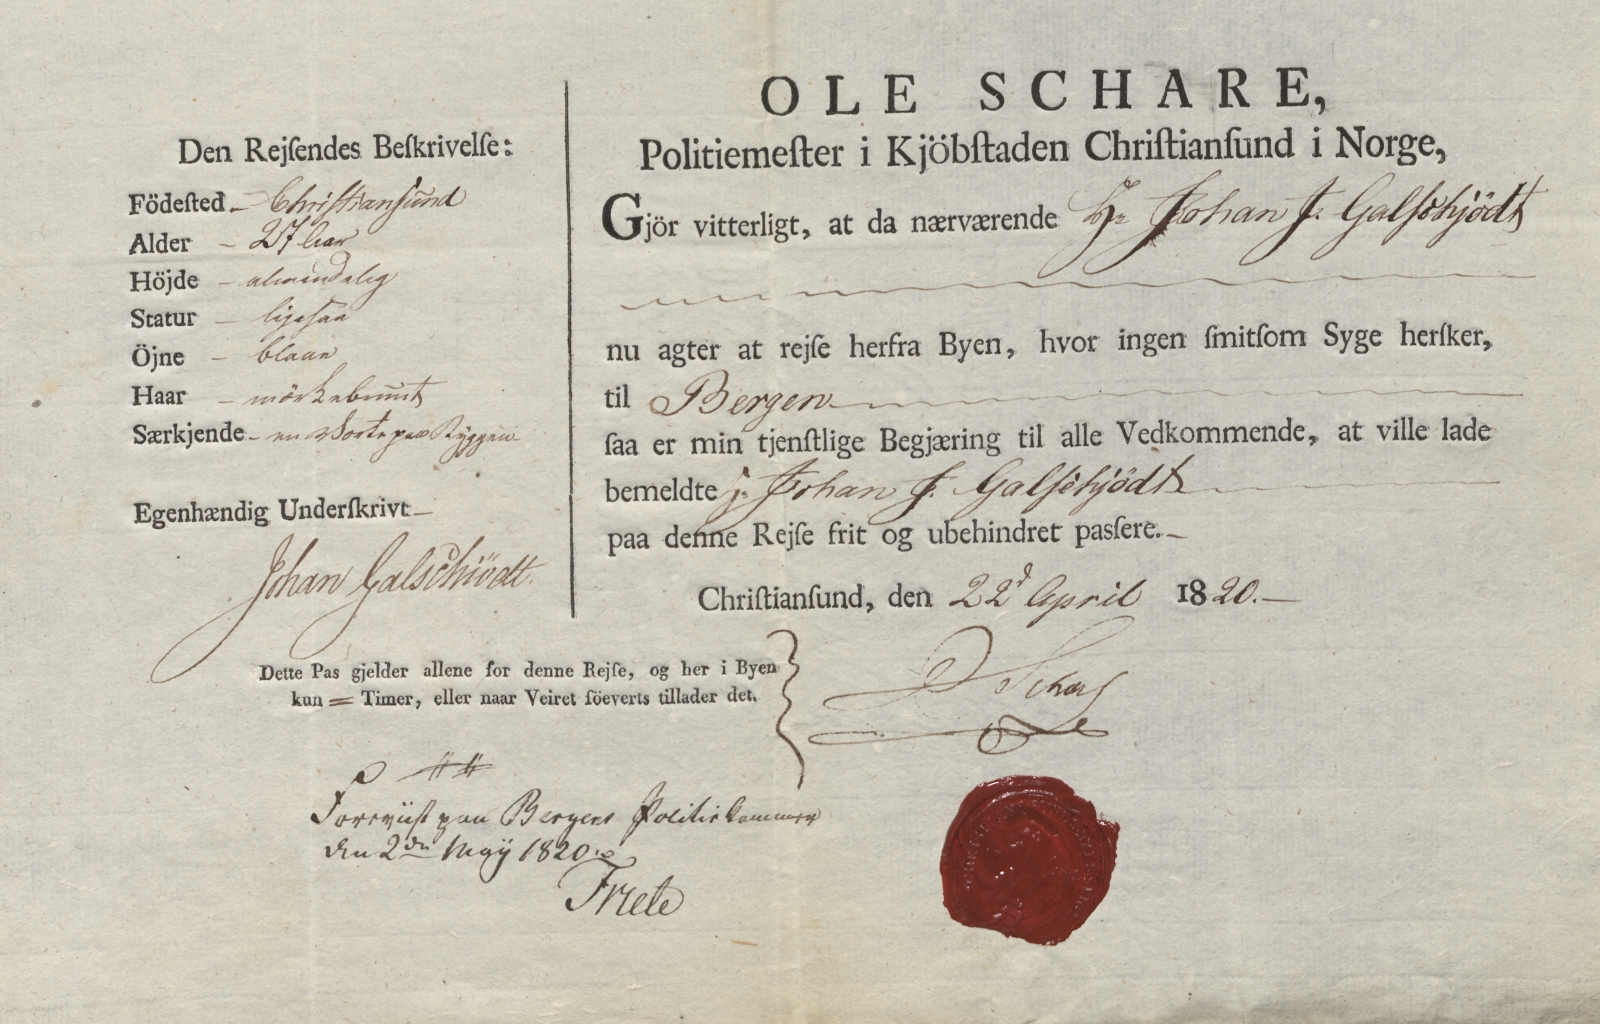 Den Rejſendes Beſkrivelſe:
Födeſted – Chriſtianſund
Alder – 27 Aar
Höjde – almindelig
Statur – ligeſaa
Öjne – blaae
Haar – mörkebrunt
Særkjende – en Vorte paa Ryggen
Egenhændig Underſkrivt –
Johan Galschiödt.
OLE SCHARE,
Politiemeſter i Kjöbſtaden Chriſtianſund i Norge,
Gjör vitterligt, at da nærværende Hr Johan J. Galſchjödt
nu agter at rejſe herfra Byen, hvor ingen ſmitſom Syge herſker,
til Bergen
ſaa er min tjenſtlige Begjæring til alle Vedkommende, at ville lade
bemeldte Johan J. Galſchjödt
paa denne Rejſe frit og ubehindret paſſere. –
Chriſtianſund, den 22d April 1820. –
Dette Pas gjelder allene for denne Rejſe, og her i Byen
kun = Timer, eller naar Veiret ſöeverts tillader det.
Foreviiſt paa Bergens Politiekammer
den 2den Maÿ 1820.
Friele